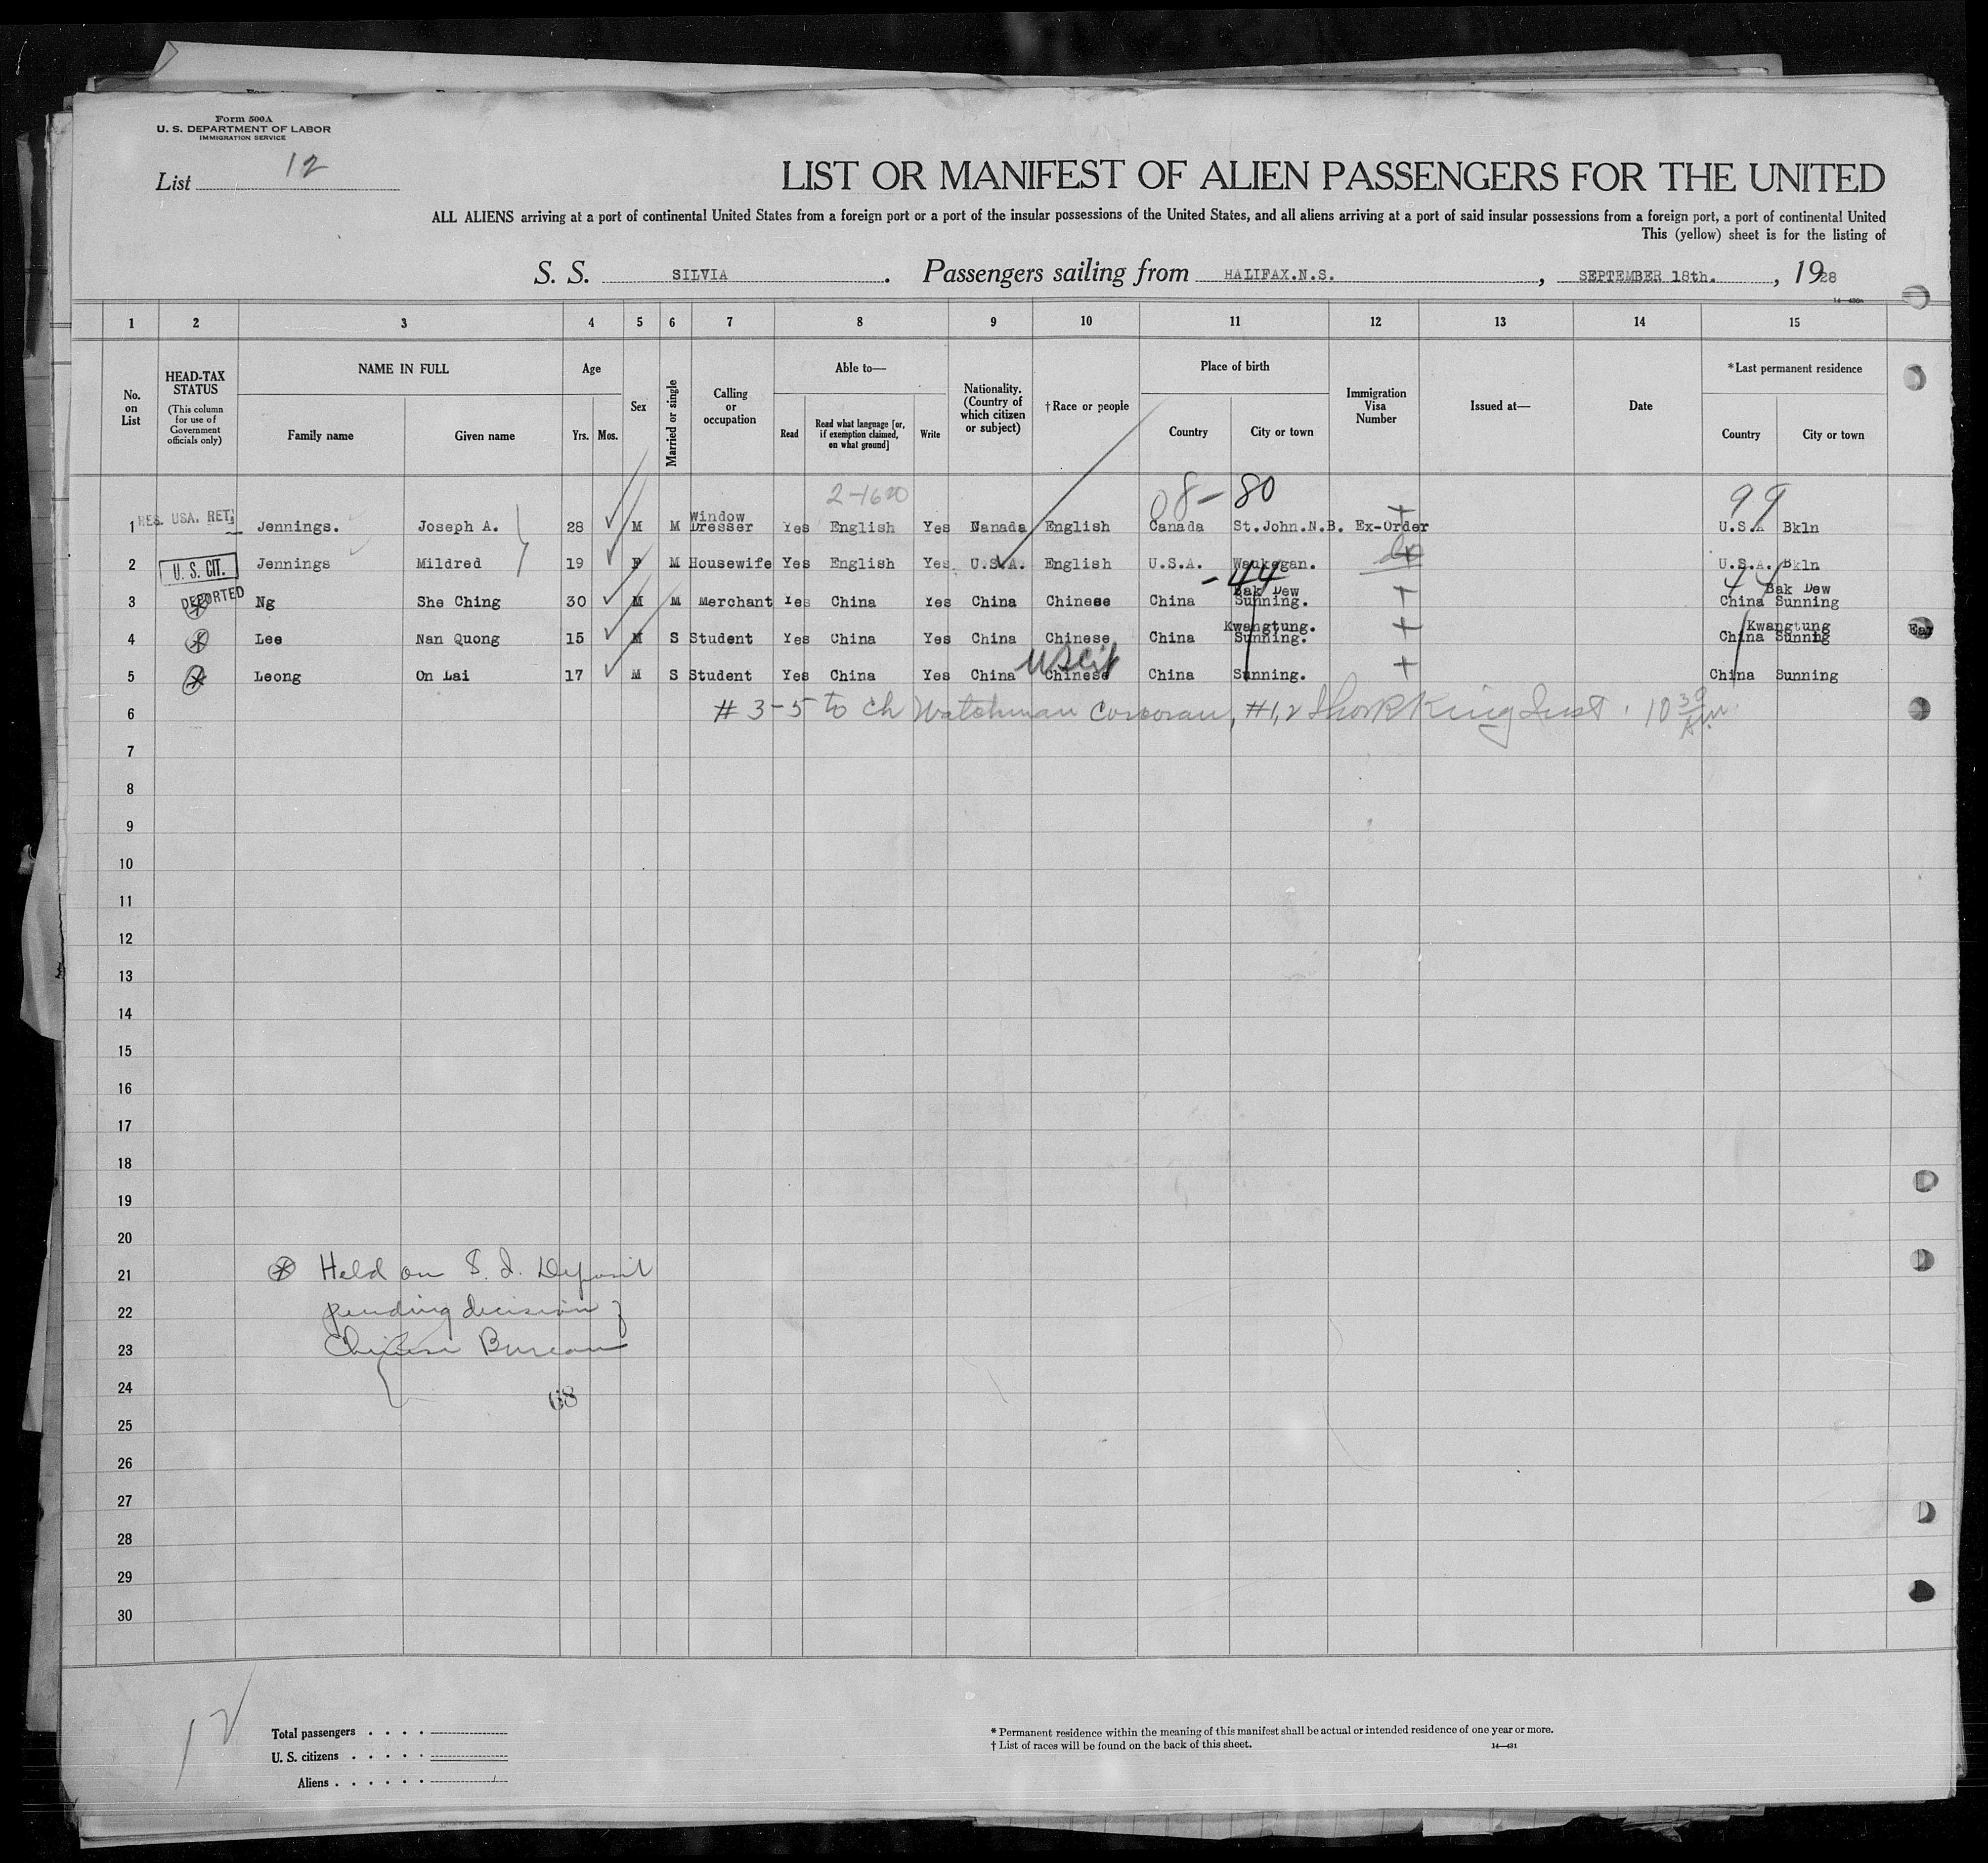 Form 500A
U. S. DEPARTMENT OF LABOR
IMMIGRATION SERVICE
List 12
LIST OR MANIFEST OF ALIEN PASSENGERS FOR THE UNITED
ALL ALIENS arriving at a port of continental United States from a foreign port or a port of the insular possessions of the United States, and all aliens arriving at a port of said insular possessions from a foreign port, a port of continental United
This (yellow) sheet is for the listing of
S. S. SILVIA. Passengers sailing from HALIFAX.N.S., SEPTEMBER 18th., 1928
1 2 3 4 5 6 7 8 9 10 11 12 13 14 15
No. on List
HEAD-TAX STATUS (This column for use of Government officials only)
NAME IN FULL
Family name Given name
Age
Yrs. Mos.
Sex
Married or single
Calling or occupation
Able to—
Read
Read what language [or, if exemption claimed, on what ground]
Write
Nationality. (Country of which citizen or subject)
†Race or people
Place of birth
Country City or town
Immigration Visa Number
Issued at—
Date
*Last permanent residence
Country City or town
2-1620 08-80 99
1 RES. USA. RET. Jennings. Joseph A. 28 M M Window Dresser Yes English Yes Nanada English Canada St.John.N.B. Ex-Order U.S.A Bkln
2 U. S. CIT. Jennings Mildred 19 F M Housewife Yes English Yes. U.S.A. English U.S.A. Waukegan. U.S.A. Bkln
-44
3 DEPORTED Ng She Ching 30 M M Merchant Yes China Yes China Chinese China Bak Dew Sunning. China Bak Dew Sunning
4 Lee Nan Quong 15 M S Student Yes China Yes China Chinese China Kwangtung. Sunning. China Kwangtung Sunning
US Cit
5 Leong On Lai 17 M S Student Yes China Yes China Chinese China Sunning. China Sunning
6 # 3-5 to Ch Watchman Corcoran, #1,2 King Inst. 10 30 AM
7
8
9
10
11
12
13
14
15
16
17
18
19
20
21 Held on S. I. Deposit
22 pending decision of
23 Chinese Bureau
24 68
25
26
27
28
29
30
12
Total passengers . . . .
U. S. citizens . . . . .
Aliens . . . . . .
* Permanent residence within the meaning of this manifest shall be actual or intended residence of one year or more.
† List of races will be found on the back of this sheet.
14—431